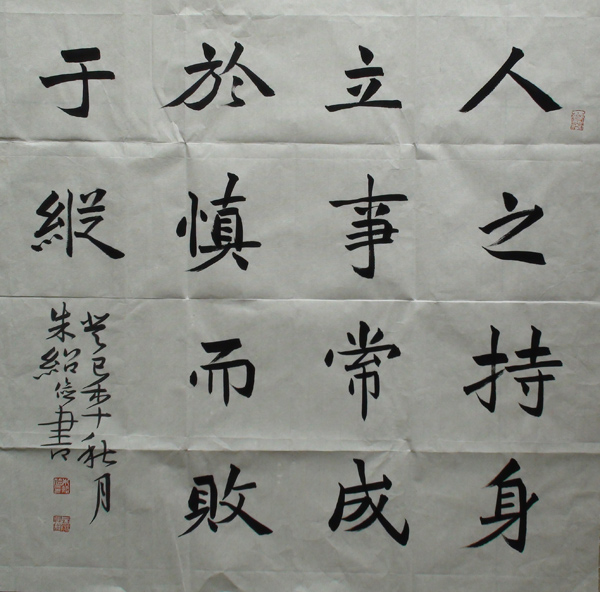 人之持身
立事常成
於慎而敗
于縱
癸巳年秋月
朱紹書